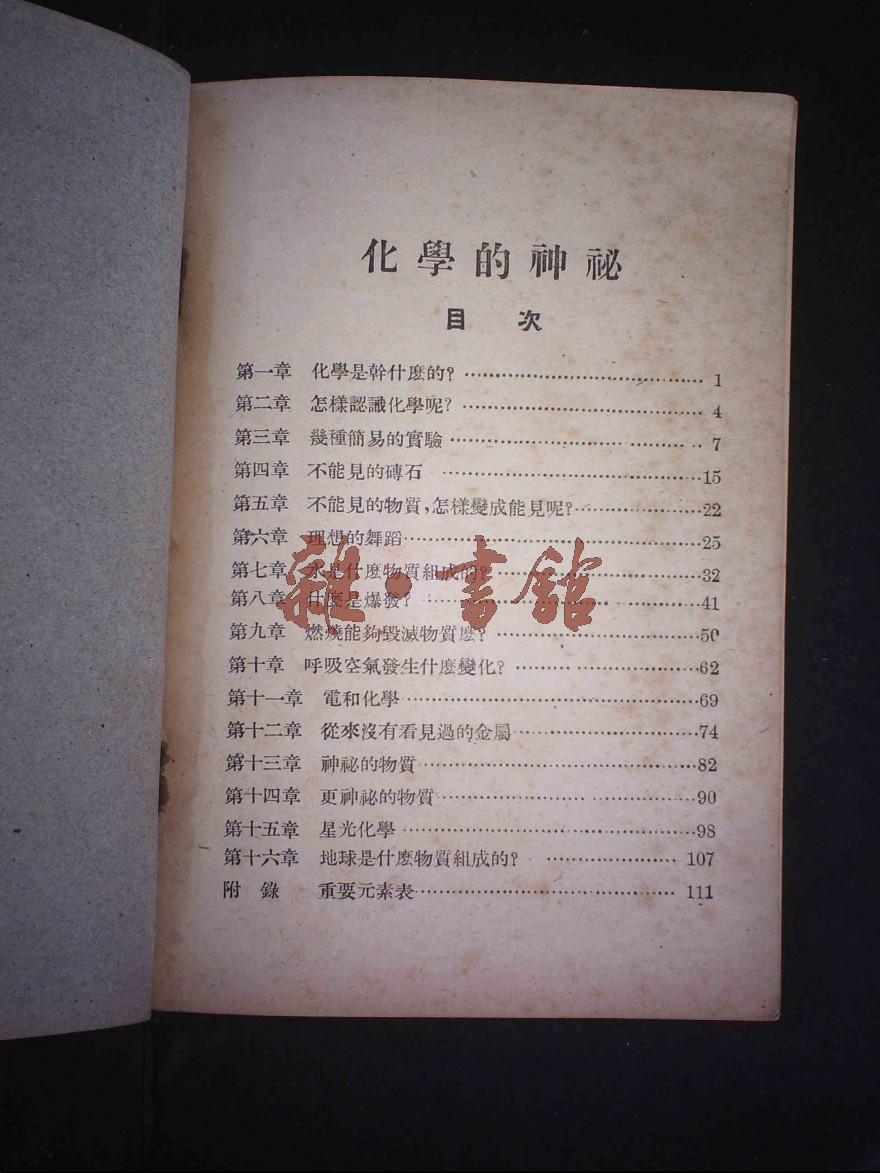 化學的神祕
目 次
第一章 化學是幹什麽的? 1
第二章 怎樣認識化學呢? 4
第三章 幾種簡易的實驗 7
第四章 不能見的磚石 15
第五章 不能見的物質,怎樣變成能見呢? 22
第六章 理想的舞蹈 25
第七章 水是什麽物質組成的? 32
第八章 什麽是爆發? 41
第九章 燃燒能夠毀滅物質麽? 50
第十章 呼吸空氣發生什麽變化? 62
第十一章 電和化學 69
第十二章 從來沒有看見過的金屬 74
第十三章 神祕的物質 82
第十四章 更神祕的物質 90
第十五章 星光化學 98
第十六章 地球是什麽物質組成的? 107
附 錄 重要元素表 111
雜·書館